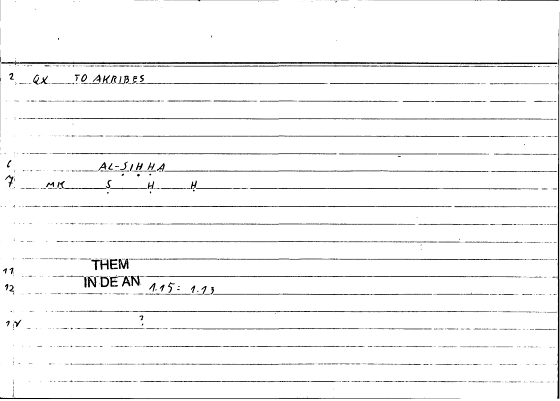 2 GX TO AKRIBES
6 AL-ṢIḤḤA
7 MK Ṣ Ḥ Ḥ
11 THEM
12 IN DE AN 1.15: 1.13
?